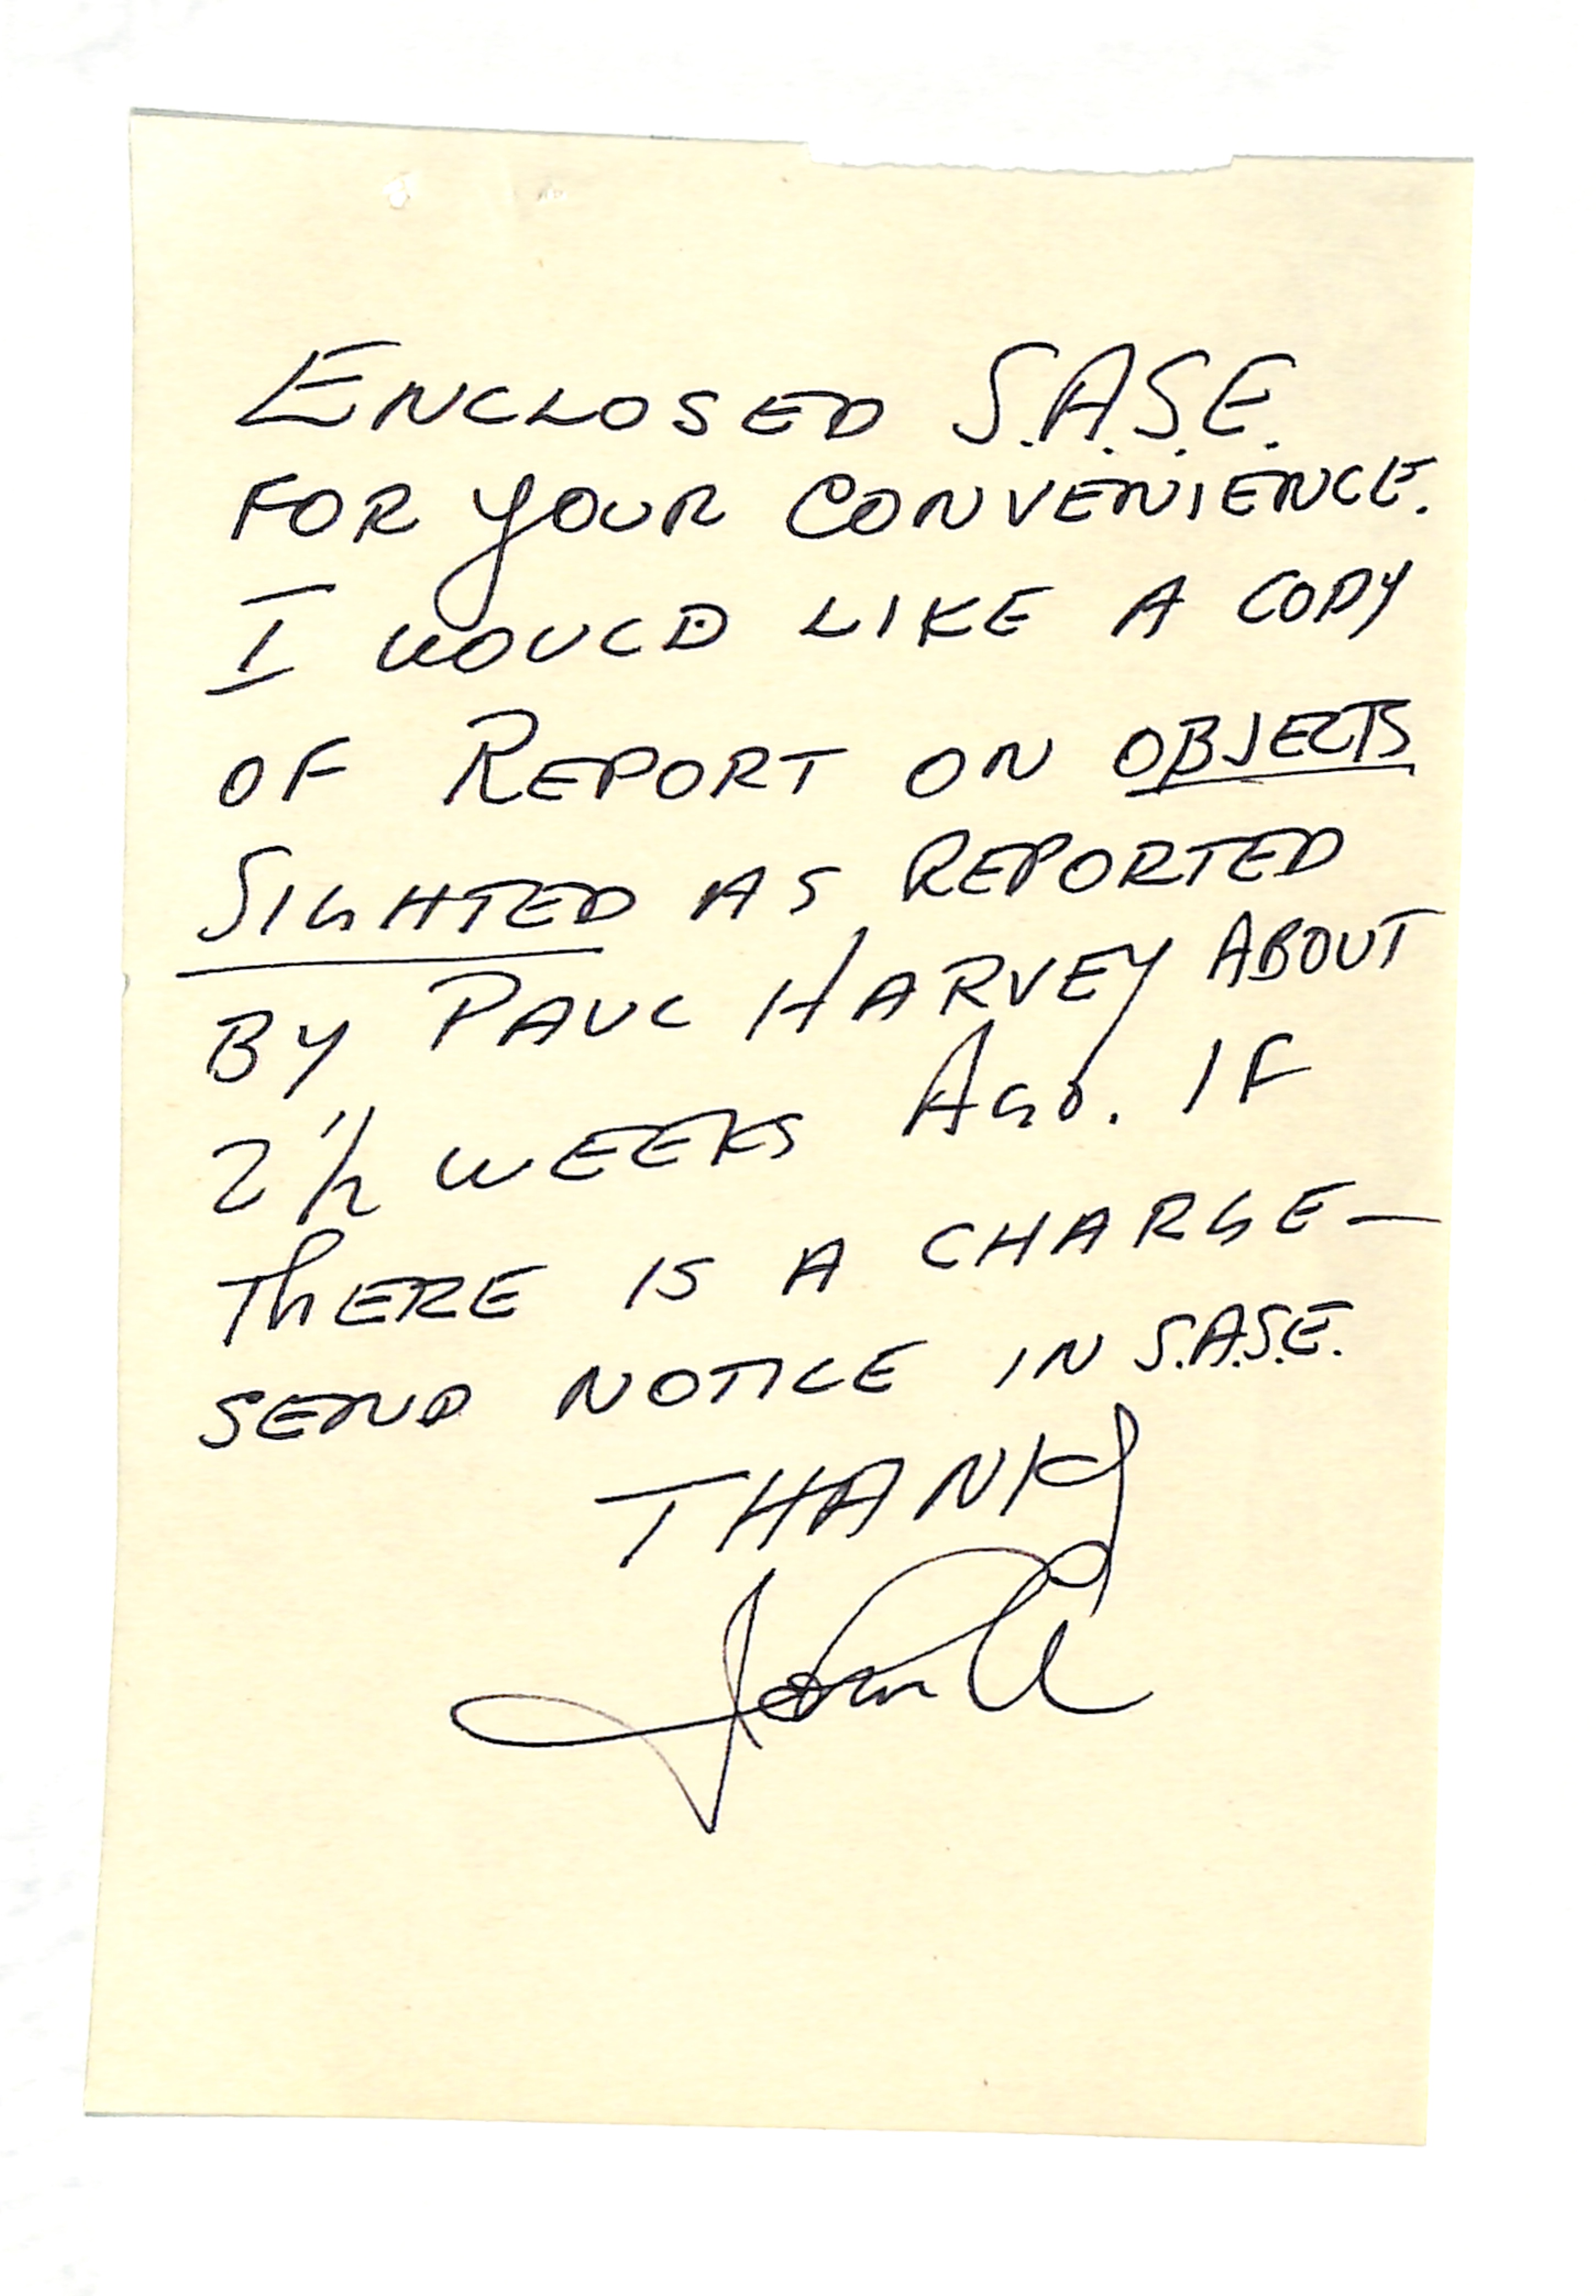 ENCLOSED S.A.S.E.
FOR YOUR CONVENIENCE.
I WOULD LIKE A COPY
OF REPORT ON OBJECTS
SIGHTED AS REPORTED
BY PAUL HARVEY ABOUT
2 1/2 WEEKS AGO. IF
THERE IS A CHARGE—
SEND NOTICE IN S.A.S.E.
THANKS